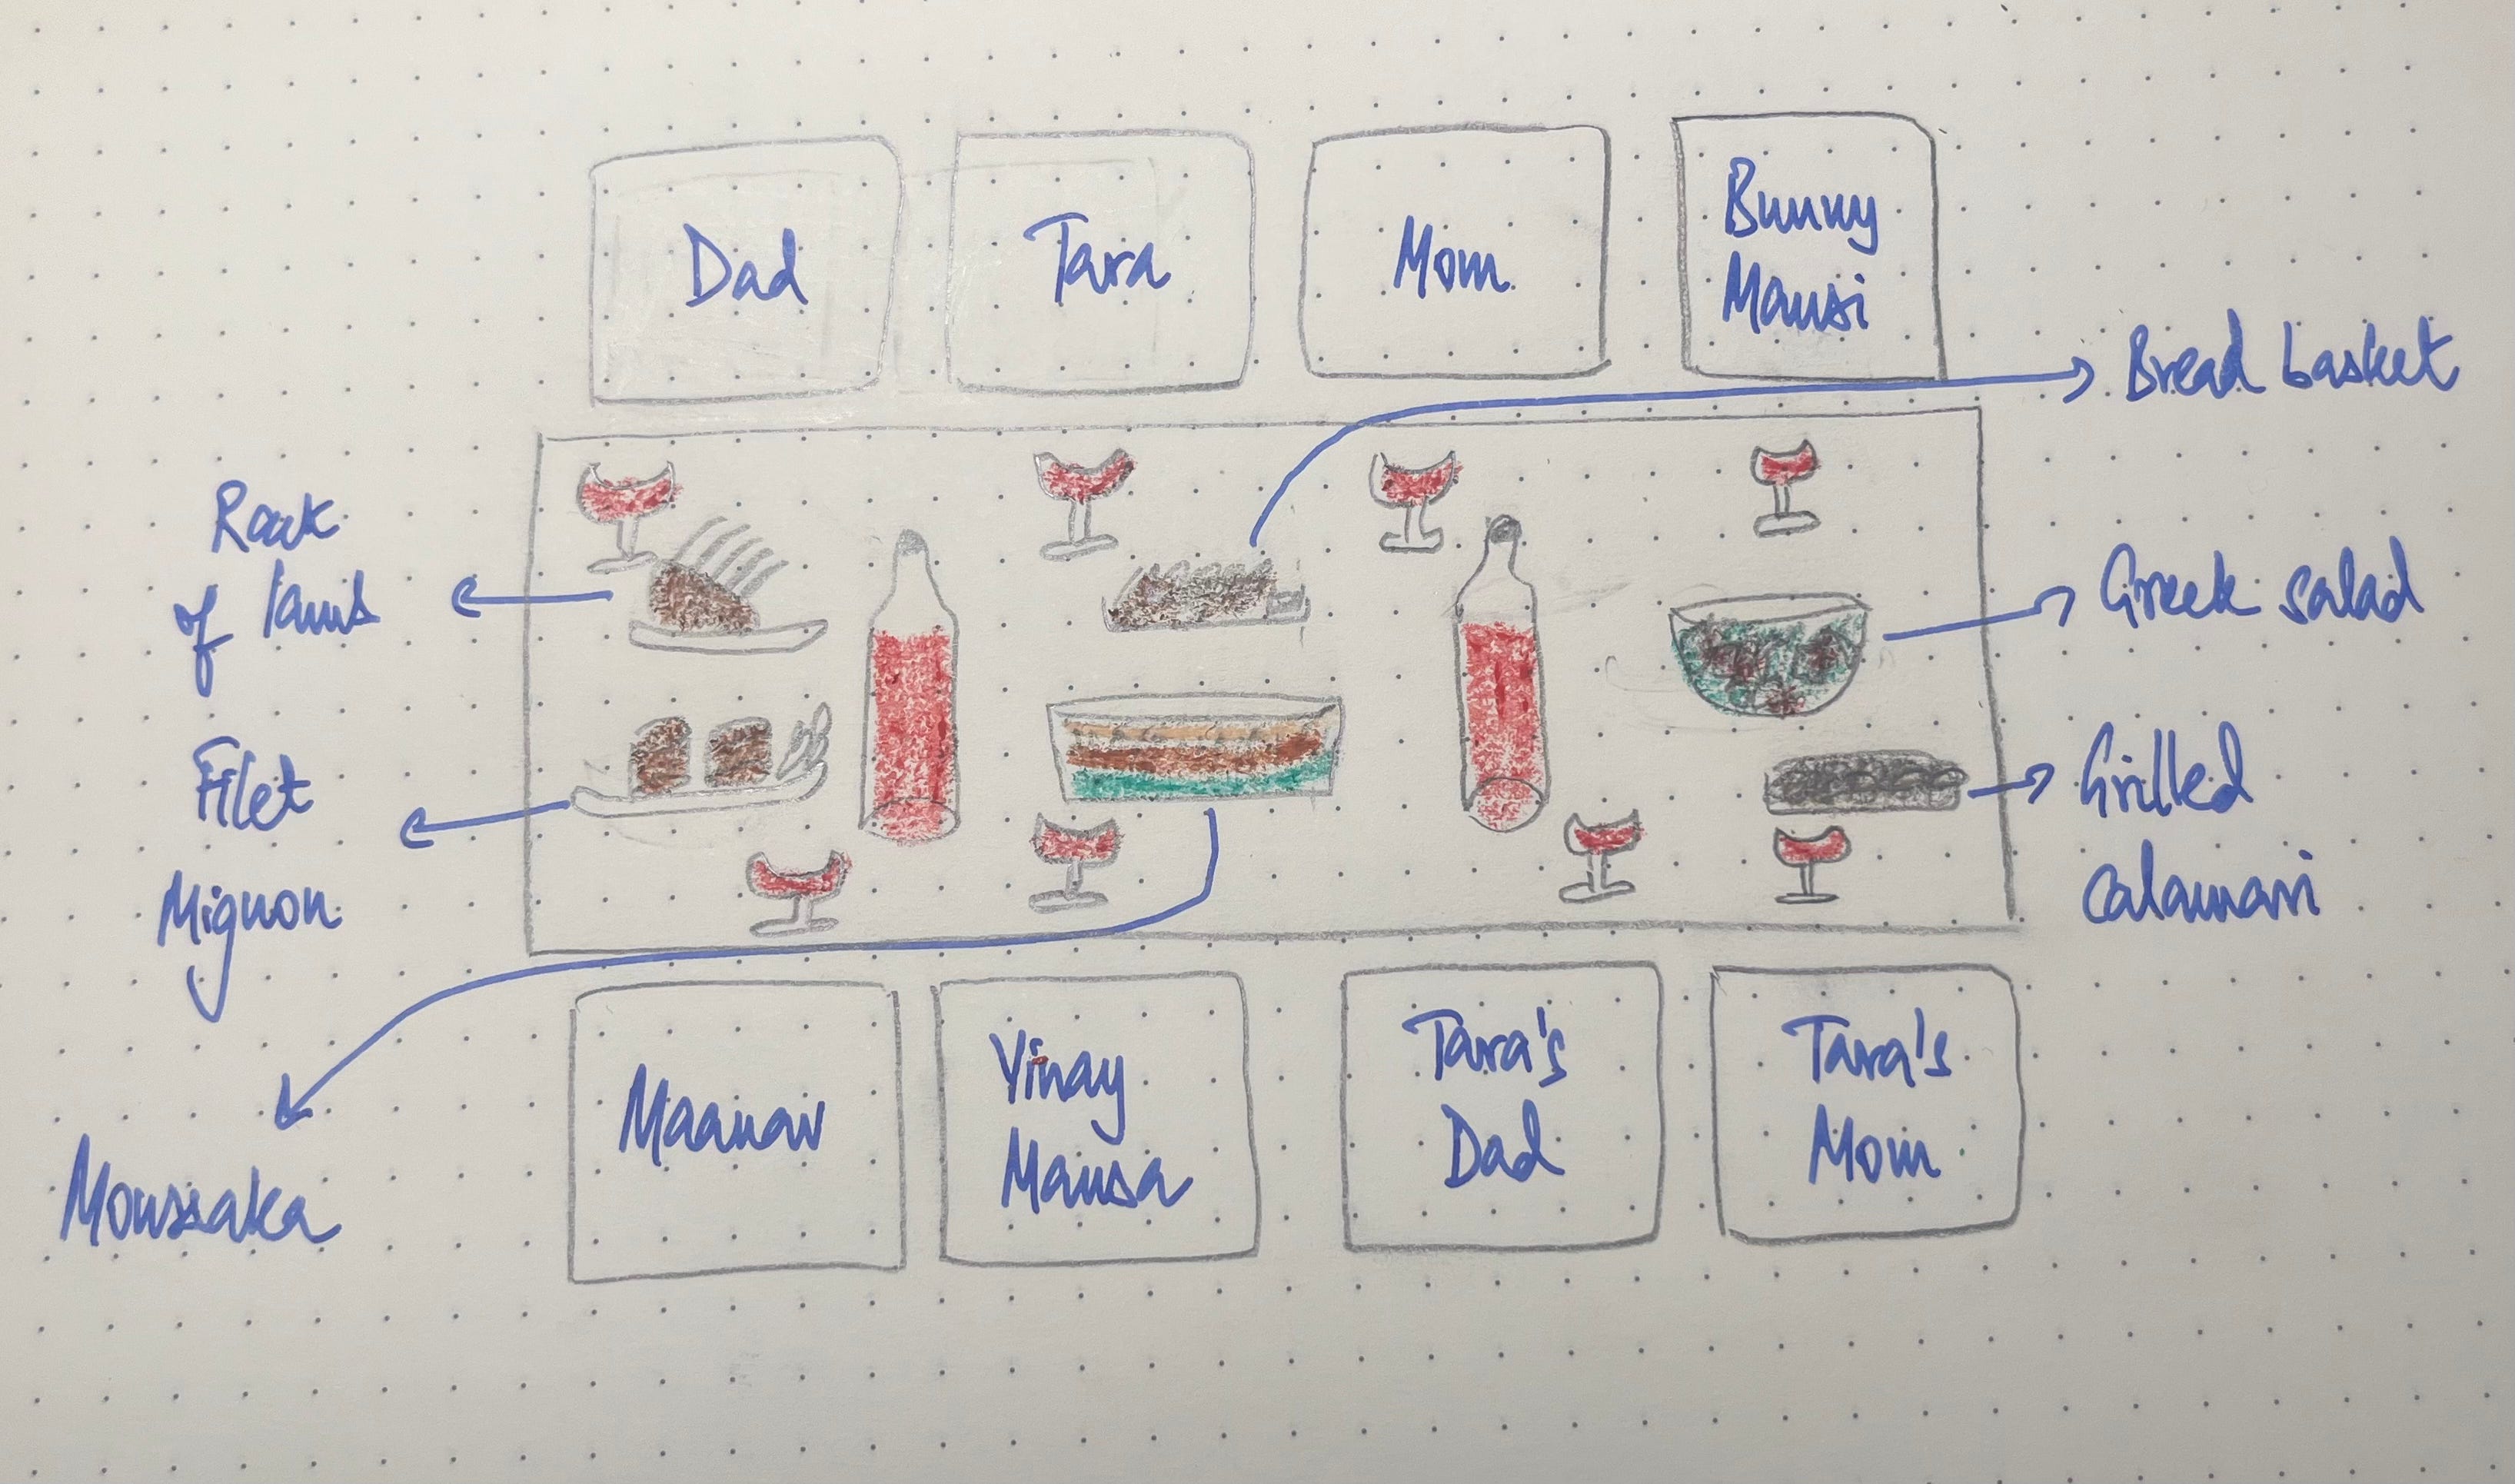 Dad
Tara
Mom
Bunny
Mausi
Bread basket
Rack
of lamb
Greek salad
Filet
Mignon
Grilled
Calamari
Moussaka
Maanav
Vinay
Mausa
Tara's
Dad
Tara's
Mom